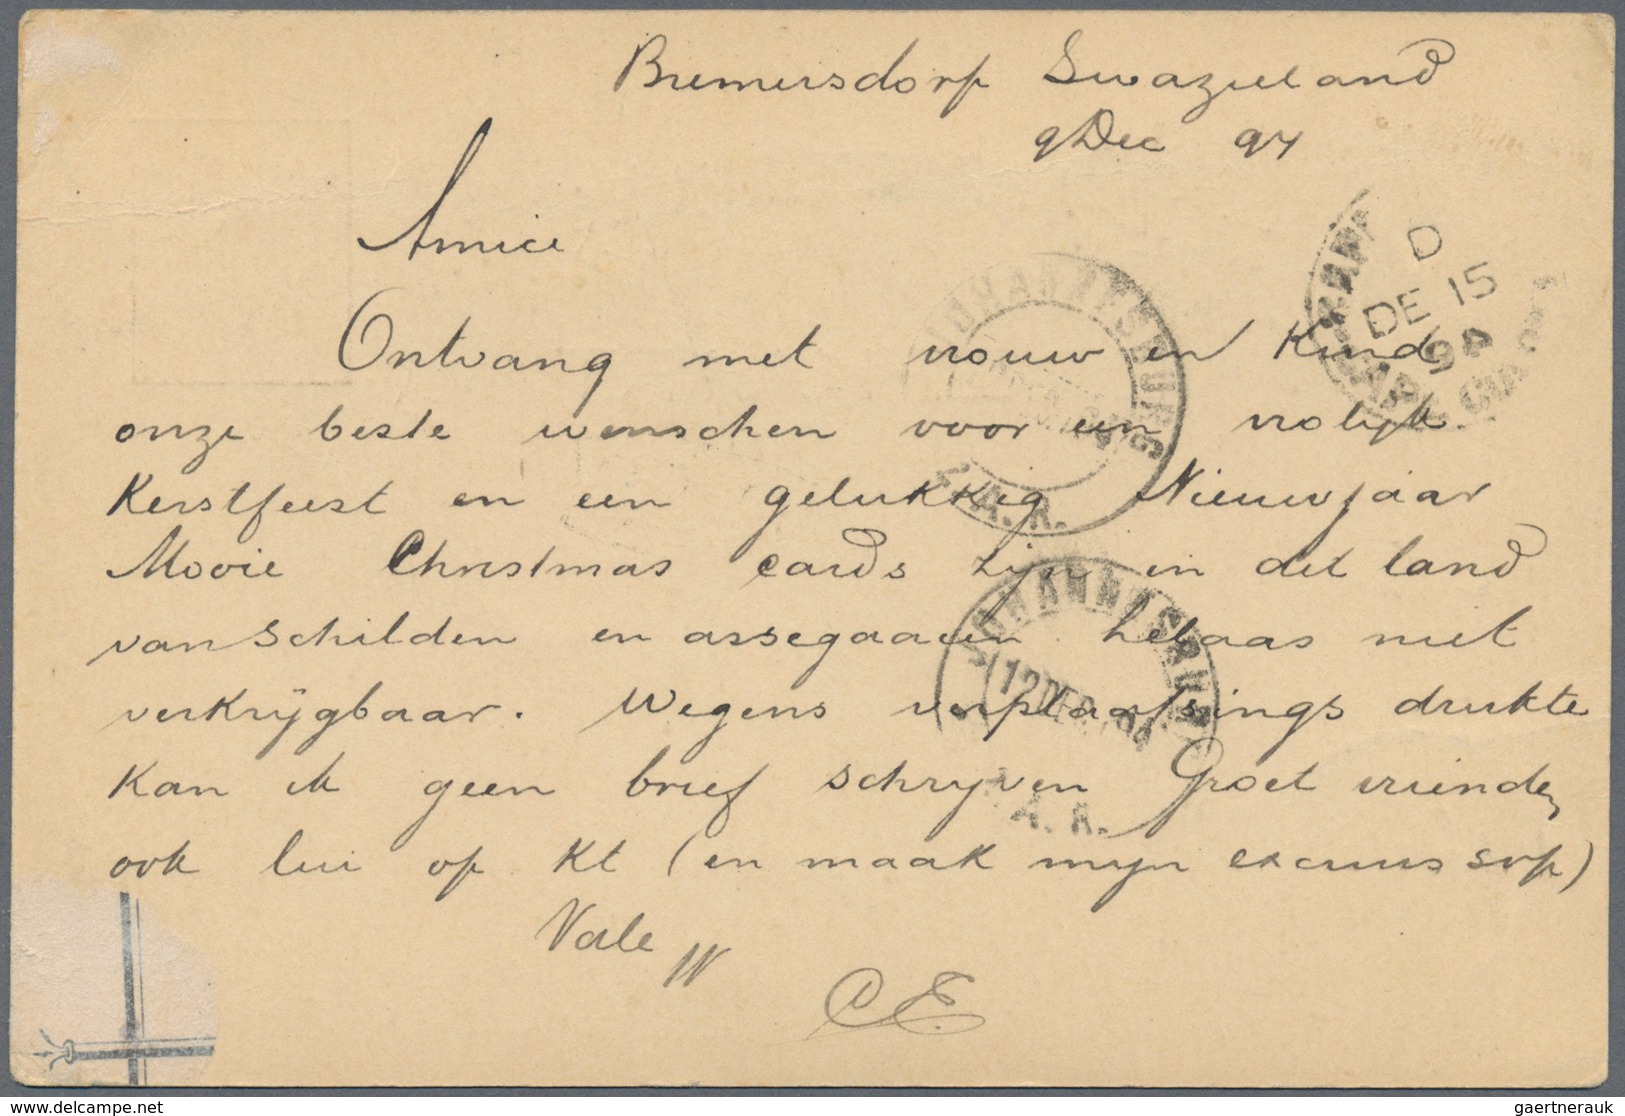 Bremersdorp Swazieland
9 Dec 94
Amice
Ontvang met vrouw en Kind
onze beste wenschen voor een vrolijk
Kerstfeest en een gelukkig Nieuwjaar
Mooie Christmas cards zijn in dit land
van schilden en assegaaien helaas niet
verkrijgbaar. Wegens verplaatsings drukte
kan ik geen brief schrijven Groet vrienden
ook lui op Kt (en maak mijn excuus svp)
Vale
CE
JOHANNESBURG
Z.A.R.
JOHANNESBURG
12 DEC 94
A.R.
D
DE 15
94
gaertnerauk
delcampe.net